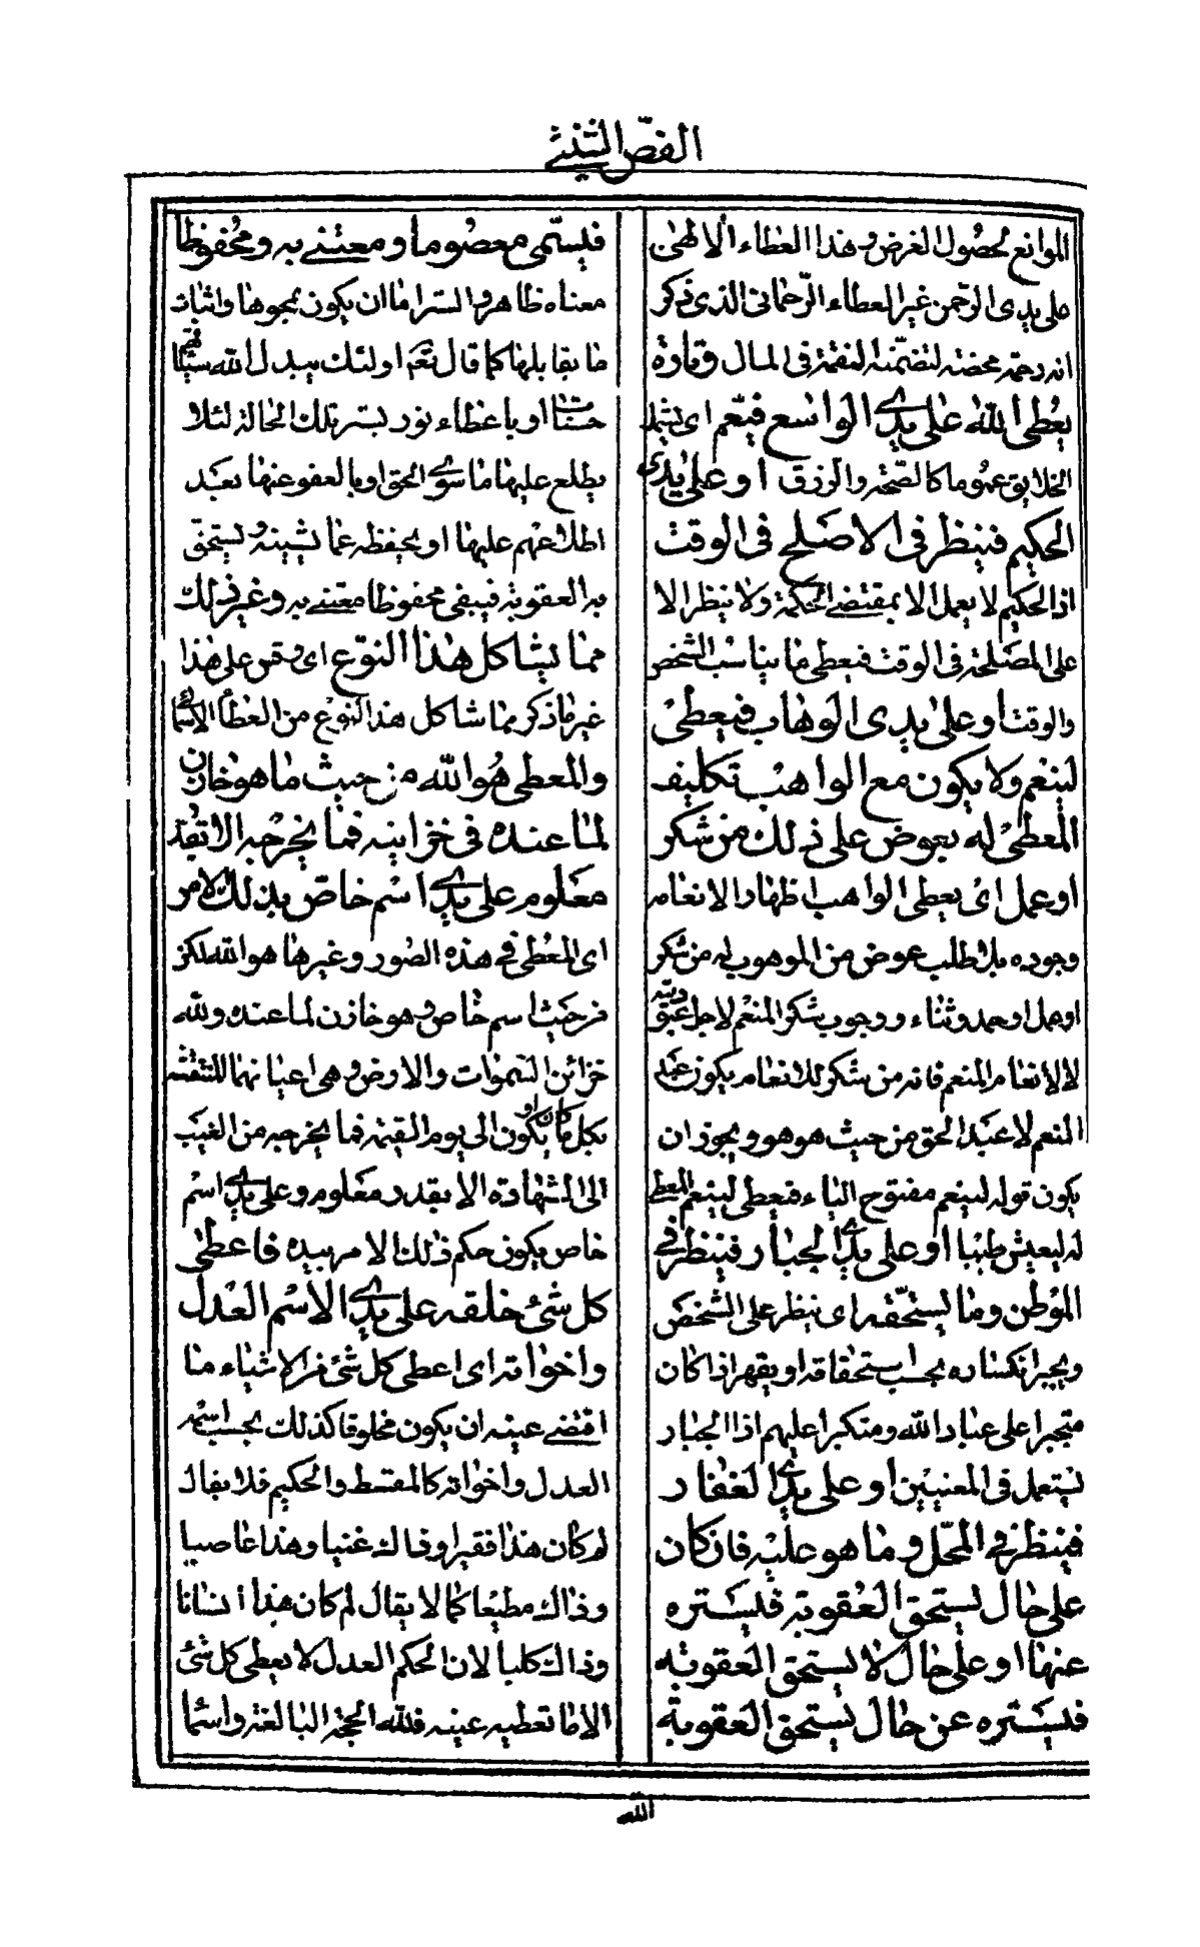 الفصّ الشيثى
الموانع لحصول الغرض وهذا العطاء الالهىّ
على يدى الرّحمن غير العطاء الرّحمانى الذى ذكر
انه رحمة محضة لتضمّنه النقمة فى المال وتارة
يعطى الله على يدى الواسع فيعم اى يشمل
الخلايق عموما كالصّحة والرزق او على يدى
الحكيم فينظر فى الاصلح فى الوقت
اذ الحكيم لا يعمل الا بمقتضى الحكمة ولا ينظر الا
على المصلحة فى الوقت فيعطى ما يناسب الشخص
والوقت او على يدى الوهاب فيعطى
لينعم ولا يكون مع الواهب تكليف
المعطى له بعوض على ذلك من شكر
او عمل اى يعطى الواهب اظهارا لانعامه
وجوده بلا طلب عوض من الموهوب له من شكر
او عمل او حمد وثناء ووجوب شكر المنعم لاجل عبوديته
لا لانعام المنعم فانه من شكر للانعام يكون عبد
المنعم لا عبد الحق من حيث هو هو ويجوز ان
يكون قوله لينعم مفتوح الياء فيعطى لينعم المعطى
له ليعيش طيبا او على يدى الجبار فينظر فى
الموطن وما يستحقّه اى ينظر على الشخص
ويجبر انكساره بحسب استحقاقه او يقهر اذا كان
متجبرا على عباد الله ومتكبرا عليهم اذ الجبار
يستعمل فى المعنيين او على يدى الغفار
فينظر فى المحل وما هو عليه فان كان
على حال يستحق العقوبة فيستره
عنها او على حال لا يستحق العقوبة
فيستره عن حال يستحق العقوبة
فيسمّى معصوما ومعتنى به ومحفوظا
معناه ظاهر والستر اما ان يكون بمحوها واثبات
ما يقابلها كما قال تعم اولئك يبدل الله سيئاتهم
حسنات او باعطاء نور يستر تلك الحالة لئلا
يطلع عليها ما سوى الحق او بالعفو عنها بعد
اطلاعهم عليها او يحفظه عما يشينه ويستحق
به العقوبة فيبقى محفوظا معتنى به وغير ذلك
مما يشاكل هذا النوع اى وقس على هذا
غير ما ذكر مما شاكل هذا النوع من العطاء الاسمائى
والمعطى هو الله من حيث ما هو خازن
لما عنده فى خزاينه فما يخرجه الا بقدر
معلوم على يدى اسم خاص بذلك الامر
اى المعطى فى هذه الصور وغيرها هو الله لكن
من حيث اسم خاص وهو خازن لما عنده ولله
خزائن السموات والارض وهى اعيانها المنتقشة
بكل ما كان او يكون الى يوم القيمة فما يخرجه من الغيب
الى الشهادة الا بقدر معلوم وعلى يدى اسم
خاص يكون حكم ذلك الامر بيده فاعطى
كل شئ خلقه على يدى الاسم العدل
واخواته اى اعطى كل شئ من الاشياء ما
اقتضى عينه ان يكون مخلوقا كذلك بحسب اسمه
العدل واخواته كالمقسط والحكيم فلا يقال
لم كان هذا فقيرا وذاك غنيا وهذا عاصيا
وذاك مطيعا كما لا يقال لم كان هذا انسانا
وذاك كلبا لان الحكم العدل لا يعطى كل شئ
الا ما تعطيه عينه فلله الحجة البالغة واسما
الله